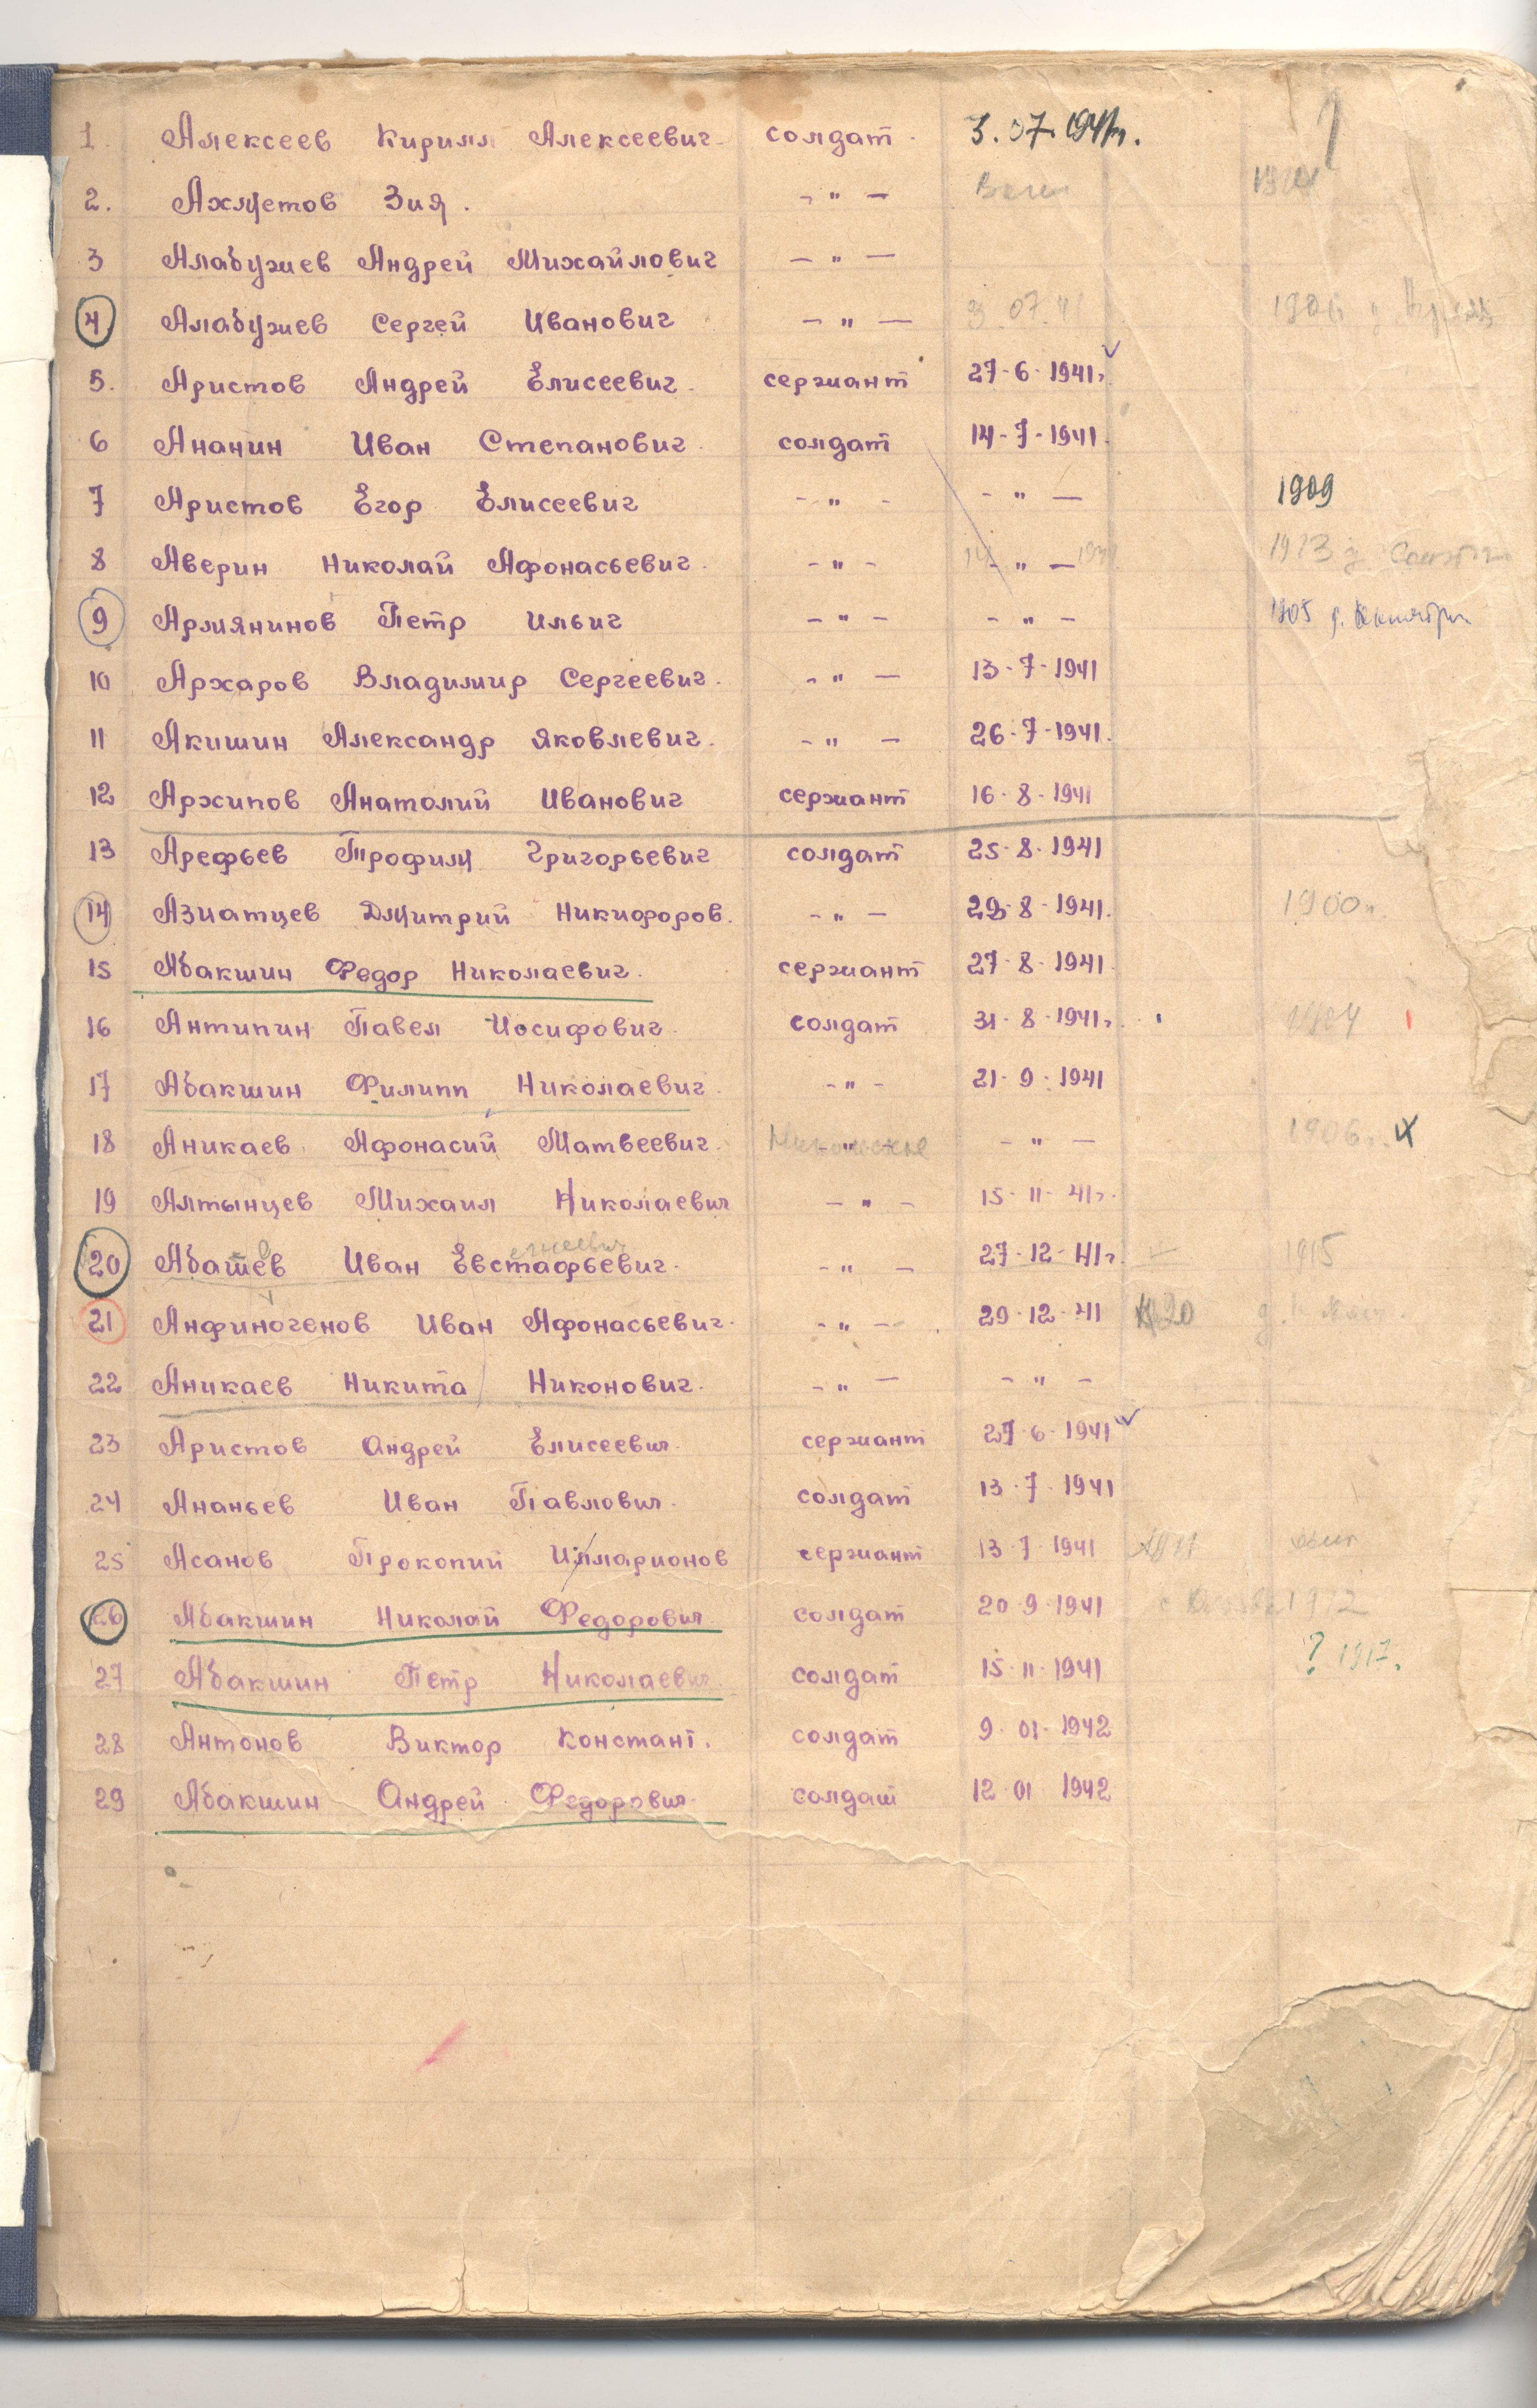 1
1. Алексеев Кирилл Алексеевич солдат 3.07.1941г.
2. Ахметов Зия. - " -
3 Алабужев Андрей Михайлович - " -
4 Алабужев Сергей Иванович - " - 3 07.41 1906
5. Аристов Андрей Елисеевич сержант 27-6-1941г.
6 Ананин Иван Степанович солдат 14-7-1941.
7 Аристов Егор Елисеевич - " - - " - 1909
8 Аверин Николай Афонасьевич - " - - " - 1913 д.
9 Армянинов Петр Ильич - " - - " - 1905 д. Октябрь
10 Архаров Владимир Сергеевич. - " - 13-7-1941
11 Акишин Александр Яковлевич. - " - 26-7-1941.
12 Архипов Анатолий Иванович сержант 16-8-1941
13 Арефьев Трофим Григорьевич солдат 25-8-1941
14 Азиатцев Дмитрий Никифоров. - " - 29-8-1941. 1900г.
15 Абакшин Федор Николаевич. сержант 27-8-1941
16 Антипин Павел Иосифович солдат 31-8-1941г.
17 Абакшин Филипп Николаевич - " - 21-9-1941
18 Аникаев Афонасий Матвеевич. - " - - " - 1906г. х
19 Алтынцев Михаил Николаевич - " - 15-11-41г.
елисеевич
20 Абашев Иван Евстафьевич. - " - 27-12-41г. 1915
21 Анфиногенов Иван Афонасьевич. - " - 29-12-41 д.
22 Аникаев Никита Никонович. - " - - " -
23 Аристов Андрей Елисеевич. сержант 27-6-1941
24 Ананьев Иван Павлович. солдат 13-7-1941
25 Асанов Прокопий Илларионов сержант 13-7-1941
26 Абакшин Николай Федорович солдат 20-9-1941 1912
27 Абакшин Петр Николаевич солдат 15-11-1941 ? 1917.
28 Антонов Виктор Констант. солдат 9-01-1942
29 Абакшин Андрей Федорович солдат 12 01 1942